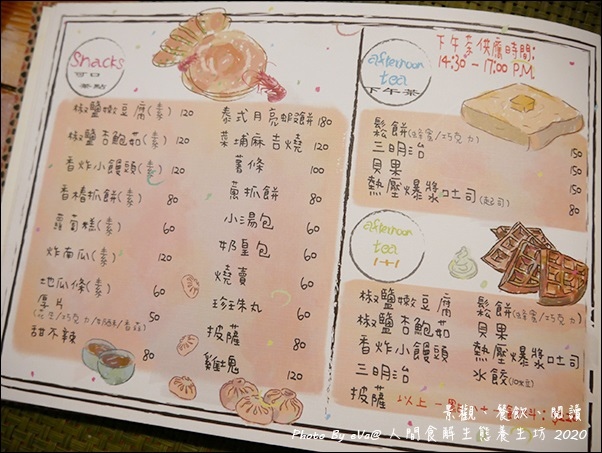 Snacks
可口
茶點
椒鹽嫩豆腐(素) 120
椒鹽杏鮑菇(素) 120
香炸小饅頭(素) 120
香椿抓餅(素) 80
蘿蔔糕(素) 60
炸南瓜(素) 120
地瓜條(素) 60
厚片
50
甜不辣 80
泰式月亮蝦餅 180
菜埔麻吉燒 120
薯條 100
蔥抓餅 80
小湯包 60
奶皇包 60
燒賣 60
珍珠丸 60
披薩 80
雞塊 120
afternoon
tea
下午茶
下午茶供應時間:
14:30~17:00 P.M.
鬆餅(蜂蜜/巧克力) 150
三明治 150
貝果 150
熱壓爆漿吐司(起司) 80
afternoon
tea
1+1
椒鹽嫩豆腐
椒鹽杏鮑菇
香炸小饅頭
三明治
披薩
鬆餅(蜂蜜/巧克力)
貝果
熱壓爆漿吐司
水餃(10粒)
以上一
景觀、餐飲、閱讀
Photo By eVa@ 人間食解生態養生坊 2020